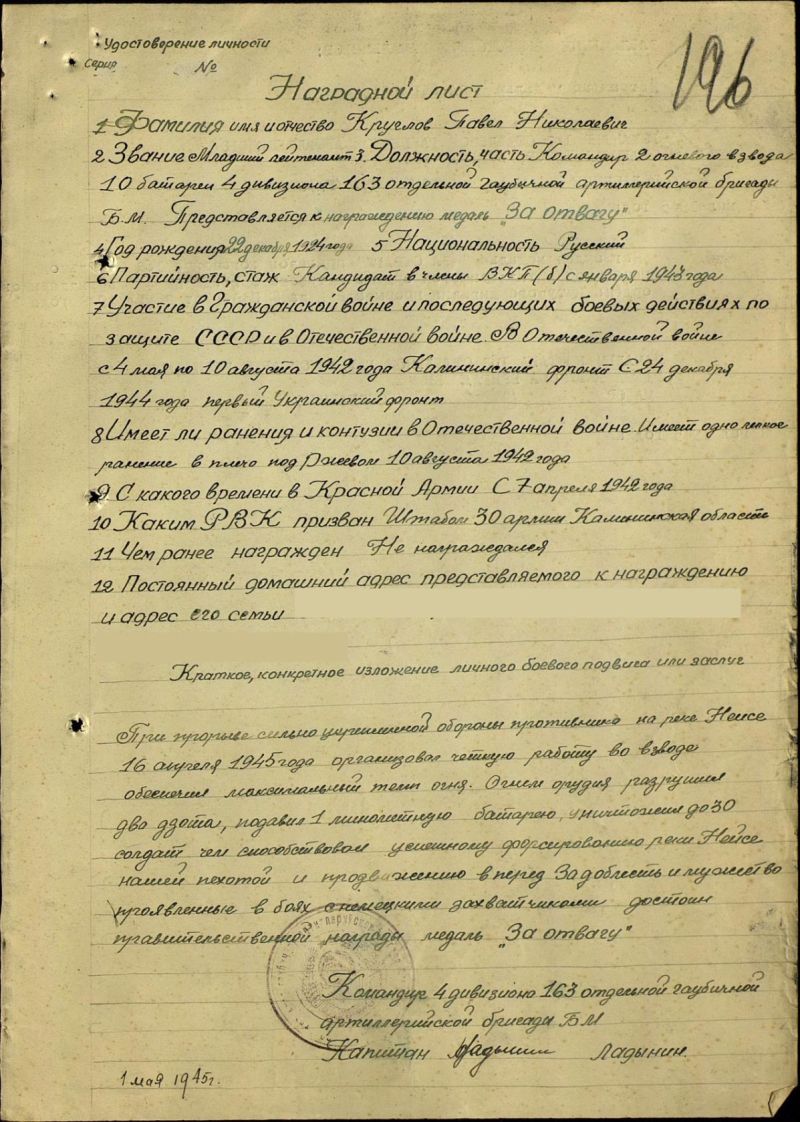 Удостоверение личности
Серия №
196
Наградной лист
1 Фамилия имя и отчество Круглов Павел Николаевич
2 Звание Младший лейтенант 3. Должность, часть Командир 2 огневого взвода
10 батареи 4 дивизиона 163 отдельной гаубичной артиллерийской бригады
Б.М. Представляется к награждению медаль "За отвагу"
4 Год рождения 22 декабря 1924 года 5 Национальность Русский
6 Партийность, стаж Кандидат в члены ВКП(б) с января 1943 года
7 Участие в Гражданской войне и последующих боевых действиях по
защите СССР и в Отечественной войне. В Отечественной войне
с 4 мая по 10 августа 1942 года Калининский фронт С 24 декабря
1944 года первый Украинский фронт
8 Имеет ли ранения и контузии в Отечественной войне. Имеет одно легкое
ранение в плечо под Ржевом 10 августа 1942 года
9 С какого времени в Красной Армии С 7 апреля 1942 года
10 Каким РВК призван Штабом 30 армии Калининская область
11 Чем ранее награжден Не награждался
12 Постоянный домашний адрес представляемого к награждению
и адрес его семьи
Краткое, конкретное изложение личного боевого подвига или заслуг
При прорыве сильно укрепленной обороны противника на реке Нейсе
16 апреля 1945 года организовал четкую работу во взводе
обеспечил максимальный темп огня. Огнем орудия разрушил
два дзота, подавил 1 минометную батарею, уничтожил до 30
солдат чем способствовал успешному форсированию реки Нейсе
нашей пехотой и продвижению в перед За доблесть и мужество
проявленные в боях с немецкими захватчиками достоин
правительственной награды медаль "За отвагу"
Командир 4 дивизиона 163 отдельной гаубичной
артиллерийской бригады БМ
Капитан Ладынин
1 мая 1945 г.